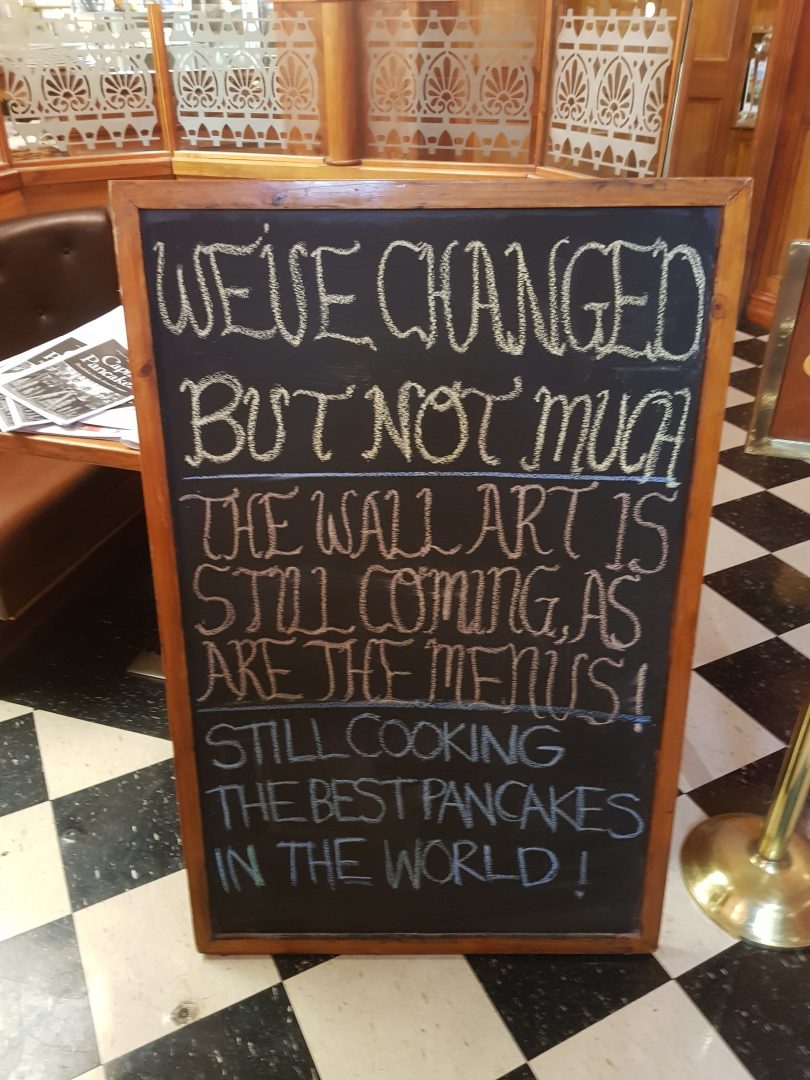 WE'VE CHANGED
BUT NOT MUCH
THE WALL ART IS
STILL COMING, AS
ARE THE MENUS!
STILL COOKING
THE BEST PANCAKES
IN THE WORLD!
Pancake